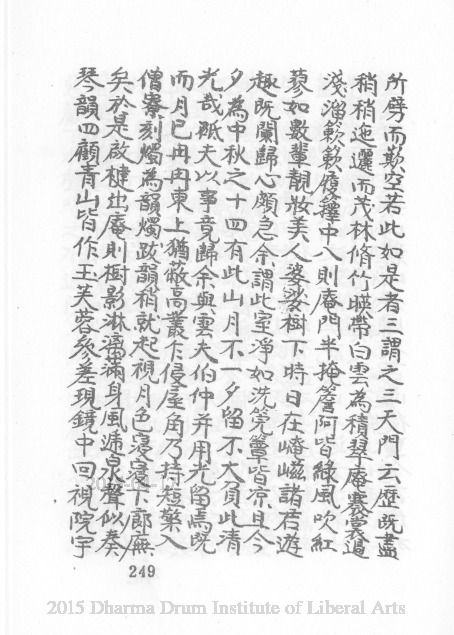 所劈而欺空若此如是者三謂之三天門云歷既盡
稍稍迤邐而茂林脩竹暎帶白雲為積翠庵褰裳過
淺溜簌簌履籜中入則庵門半掩簷阿皆綠風吹紅
蓼如數輩靚妝美人婆娑樹下時日在崦嵫諸君遊
趣既闌歸心頗急余謂此室淨如洗筦簟皆凉且今
夕為中秋之十四有此山月不一夕留不大負此清
光哉砥夫以事竟歸余與雲夫伯仲并用光留焉既
而月已冉冉東上猶蔽高叢乍侵屋角乃持短檠入
僧寮刻燭為韻燭跋韻稍就起視月色寖寖下廊廡
矣於是啟楗出庵則樹影淋漓滿身風遞泉聲似奏
琴韻四顧青山皆作玉芙蓉參差現鏡中回視院宇
249
2015 Dharma Drum Institute of Liberal Arts